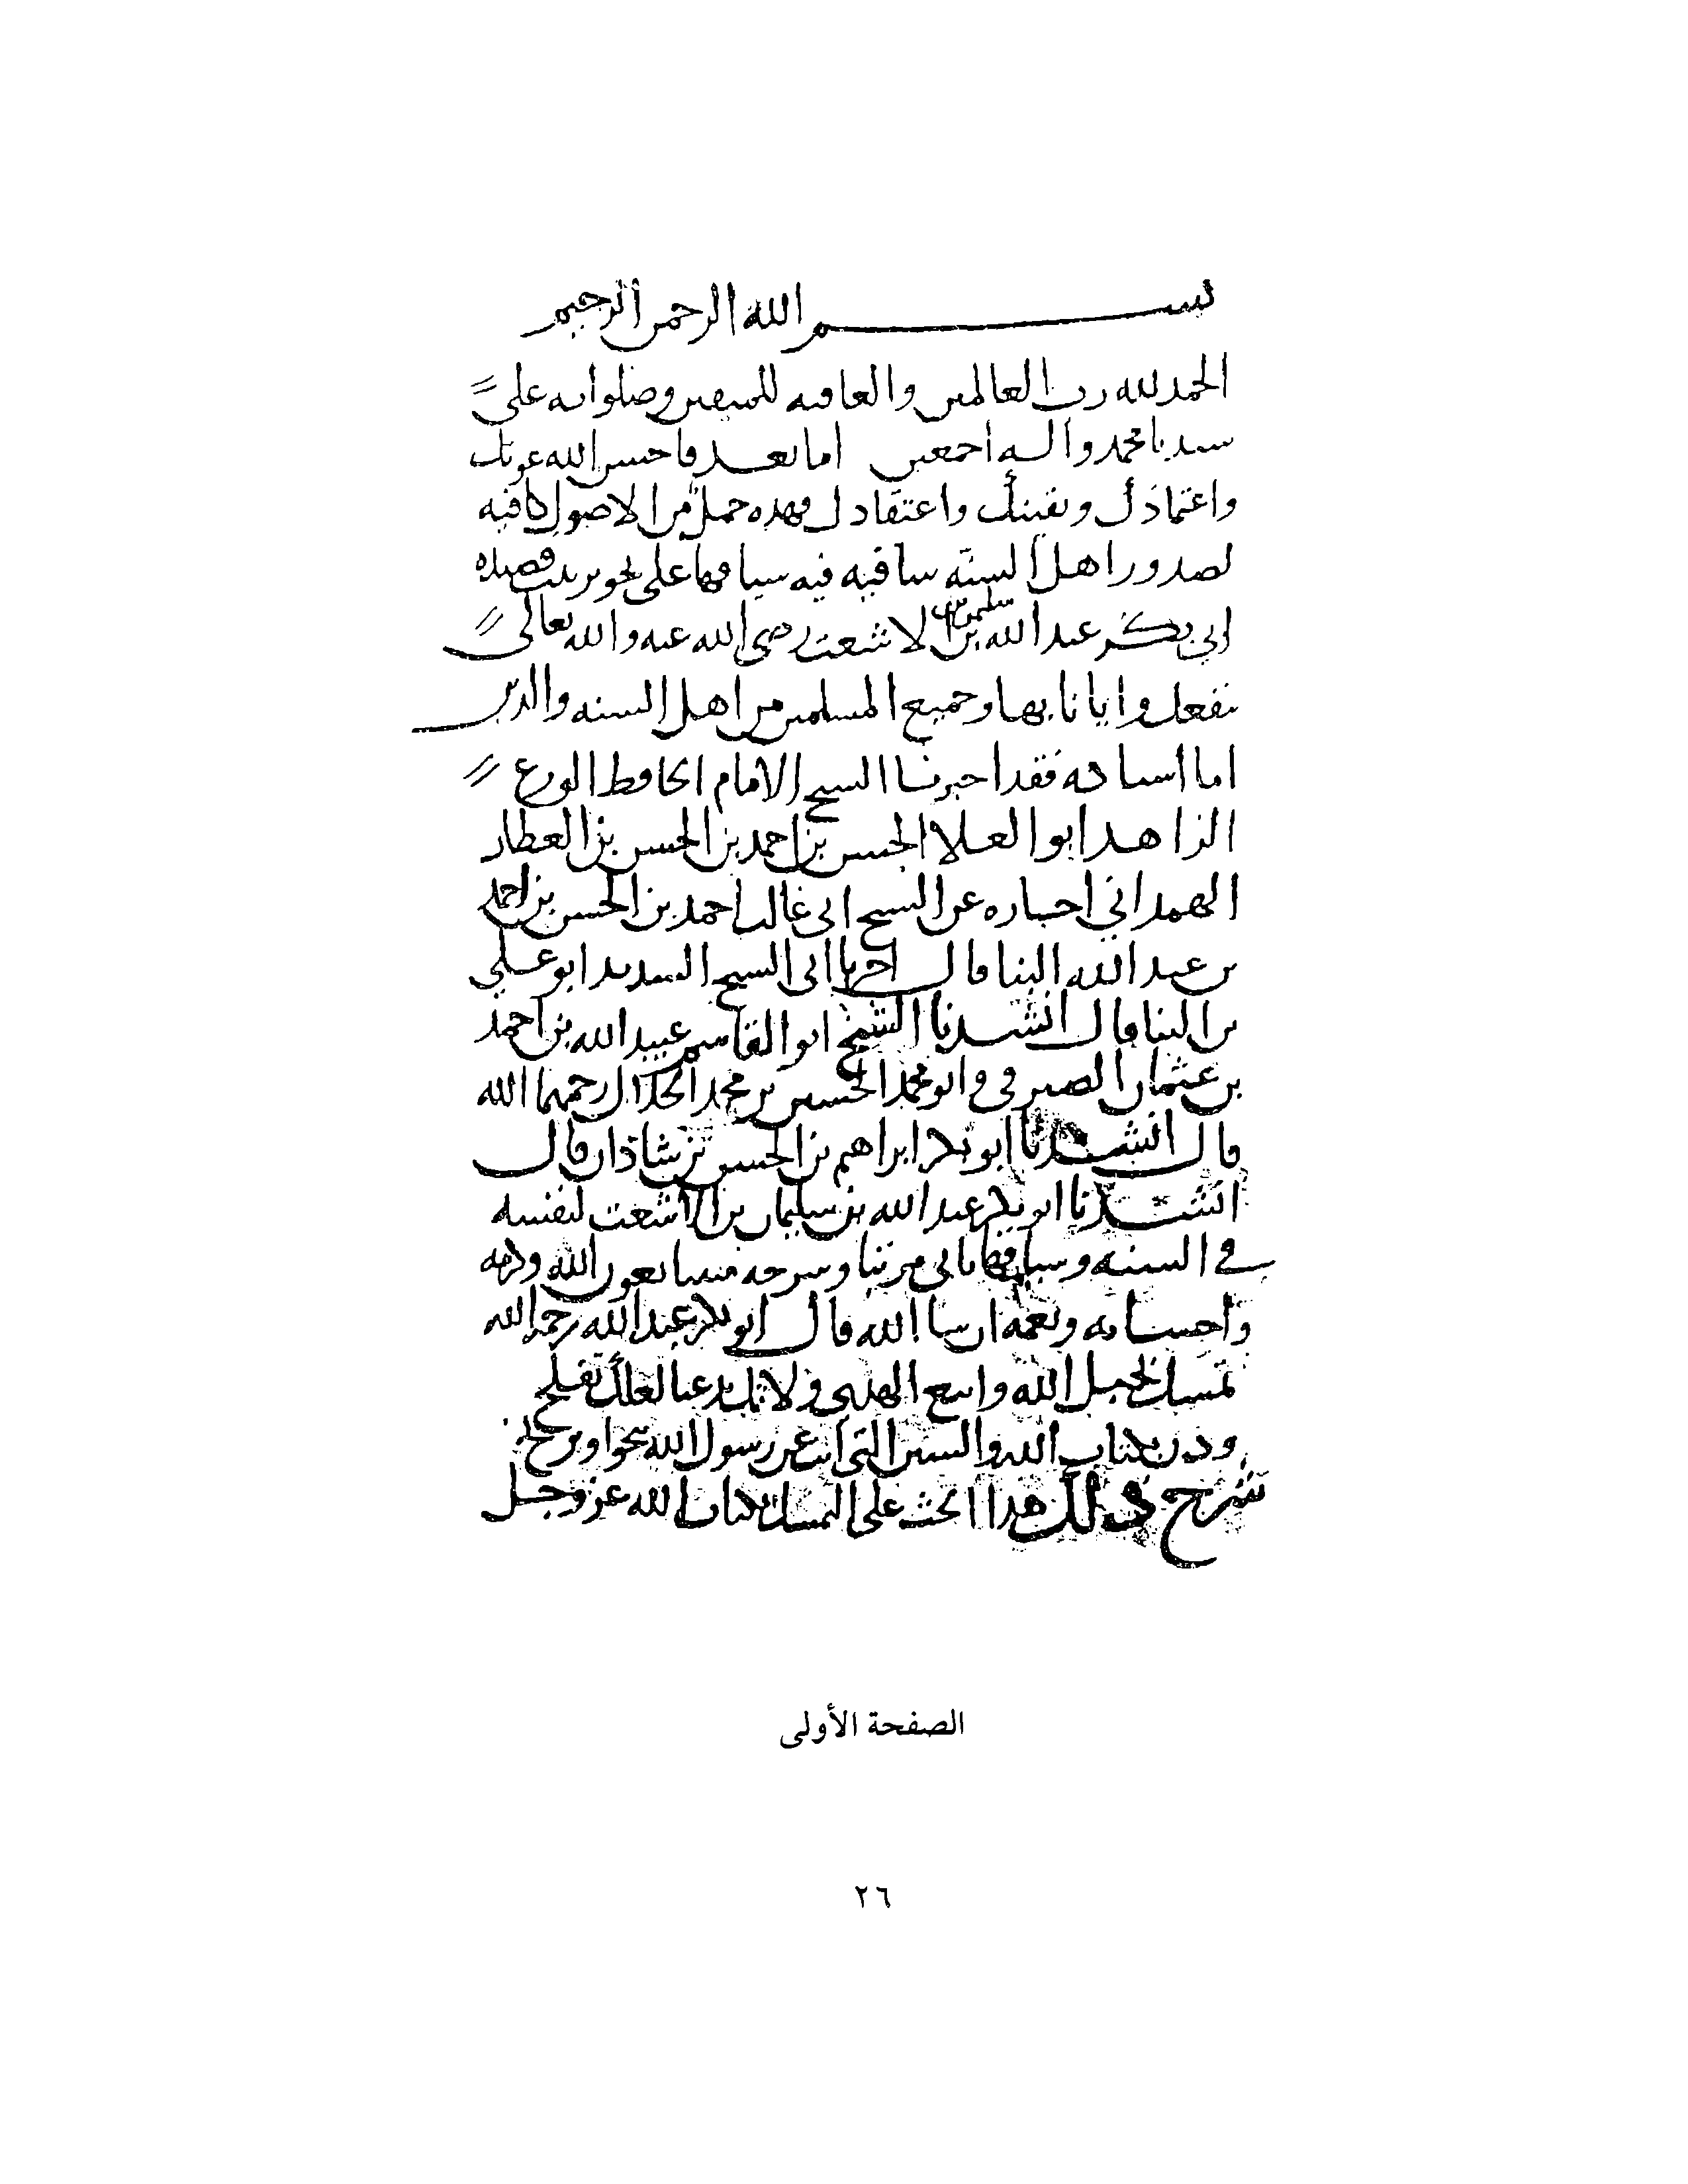 بسم الله الرحمن الرحيم
الحمد لله رب العالمين والعاقبه للمتقين وصلواته على
سيدنا محمد واله اجمعين اما بعد فاحسن الله عونك
واعتمادك ويقينك واعتقادك فهذه جمل من الاصول كافيه
لصدور اهل السنه شافيه فيه سياقها على نحو ترتيب قصيده
ابي بكر عبد الله بن سليمن بن الاشعث رضي الله عنه والله تعالى
ينفعك وايانا بها وجميع المسلمين من اهل السنه والدين
اما اسناده فقد اخبرنا الشيخ الامام الحافظ الورع
الزاهد ابو العلا الحسن بن احمد بن الحسن بن العطار
الهمداني اجازه عن الشيخ ابى غالب احمد بن الحسن بن احمد
بن عبد الله البنا قال اخبرنا ابى الشيخ السديد ابو علي
بن البنا قال انشدنا الشيخ ابو القاسم عبيد الله بن احمد
بن عثمان الصيرفي وابو محمد الحسن بن محمد الخلال رحمهما الله
قال انشدنا ابو بكر ابراهيم بن الحسن بن شاذان قال
انشدنا ابو بكر عبد الله بن سليمان بن الاشعث لنفسه
في السنه وسياقها ياتى مرتبا وشرحه مبينا بعون الله وكرمه
واحسانه ونعمه ان شا الله قال ابو بكر عبد الله رحمه الله
تمسك بحبل الله واتبع الهدى ولا تك بدعيا لعلك تفلح
ودن بكتاب الله والسنن التى اتت عن رسول الله تنجوا وتربح
شرح ذلك هذا الحث على التمسك بكتاب الله عز وجل
الصفحة الأولى
٢٦